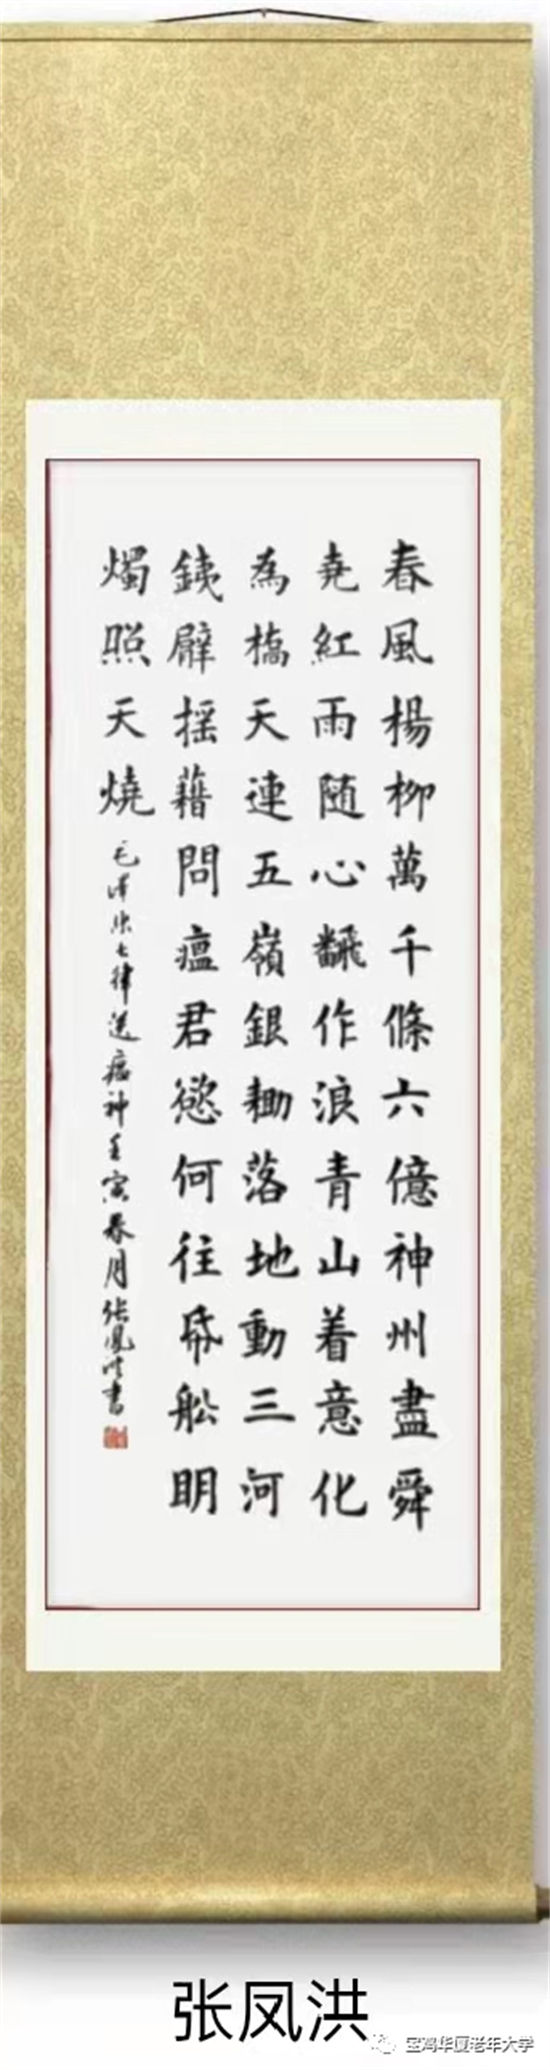 春風楊柳萬千條六億神州盡舜
尭紅雨随心飜作浪青山着意化
為橋天連五嶺銀耡落地動三河
銕臂摇藉問瘟君慾何往帋船明
燭照天燒
毛泽东七律送瘟神壬寅春月张凤洪書
张凤洪
宝鸡华厦老年大学